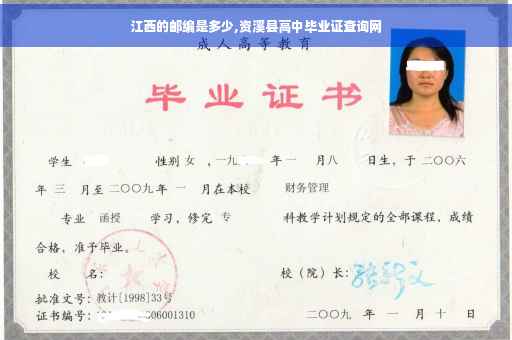 江西的邮编是多少,资溪县高中毕业证查询网
成人高等教育
毕业证书
学生 性别 女 ,一九 年 一 月八 日生,于 二〇〇六
年 三 月至 二〇〇九 年 一 月在本校 财务管理
专业 函授 学习,修完 专 科教学计划规定的全部课程,成绩
合格,准予毕业。
校 名: 校(院)长:
批准文号:教计[1998]33号
证书编号: 06001310 二〇〇九 年 一 月 十 日